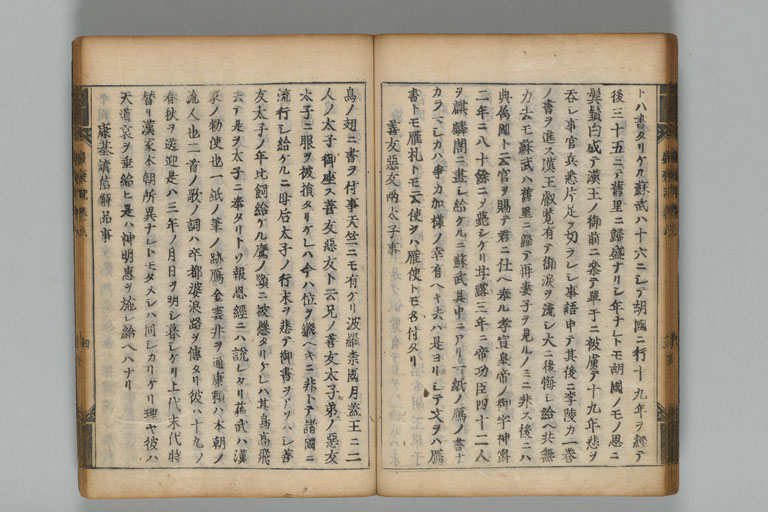 トハ書タリケル蘇武ハ十六ニシテ胡國ニ行十九年ヲ經テ
後三十五ニテ舊里ニ歸盛ナリシ年ナレトモ胡國ノモノ思ニ
鬢鬚白成テ漢王ノ御前ニ參テ單于ニ被虜テ十九年悲ヲ
吞シ事官兵悉片足ヲ切ラレシ事語申テ其後ニ李陵カ一巻
ノ書ヲ進ス漢王叡覧有テ御涙ヲ流シ大ニ後悔シ給ヘ共無
力去モ蘇武ハ舊里ニ歸テ再妻子ヲ見ルノミニ非ス後ニハ
典属國ト云官ヲ賜テ君ニ仕ヘ奉ル孝宣皇帝ノ御宇神爵
二年ニ八十餘ニテ薨シケリ甘露三年ニ帝功臣四十二人
ヲ麒麟閣ニ畫シ給ケルニ蘇武其中ニアリ一紙ノ鴈ノ書ナ
カラマシカハ争カ加様ノ幸有ヘキ去ハ是ヨリシテ文ヲハ鴈
書トモ雁札トモ云使ヲハ雁使トモ名付タリ
善友惡友兩太子事
鳥ノ翅ニ書ヲ付事天竺ニモ有ケリ波羅柰國月蓋王ニ二
人ノ太子御座ス善友惡友ト云兄ノ善友太子弟ノ惡友
太子ニ眼ヲ被損タリケレハ今ハ位ヲ繼ヘキニ非トテ諸國ニ
流行シ給ケルニ母后太子ノ行末ヲ悲テ御書ヲアソハシ善
友太子ノ年比飼給ケル鷹ノ頸ニ被懸タリケレハ其鳥高飛
去テ是ヲ太子ニ奉タリトソ報恩經ニハ説レタリ蘇武ハ漢
家ノ勅使也一紙ノ筆ノ跡鴈金雲井ヲ通康頼ハ本朝ノ
流人也二首ノ歌ノ詞ハ卒都婆浪路ヲ傳タリ彼ハ十九ノ
春秋ヲ送迎是ハ三年ノ月日ヲ明シ暮シケリ上代末代時
替リ漢家本朝所異ナレトモタメシハ同シカリケリ理ヤ彼ハ
天道哀ヲ垂給ヒ是ハ神明惠ヲ施シ給ヘハナリ
康基清信解品事